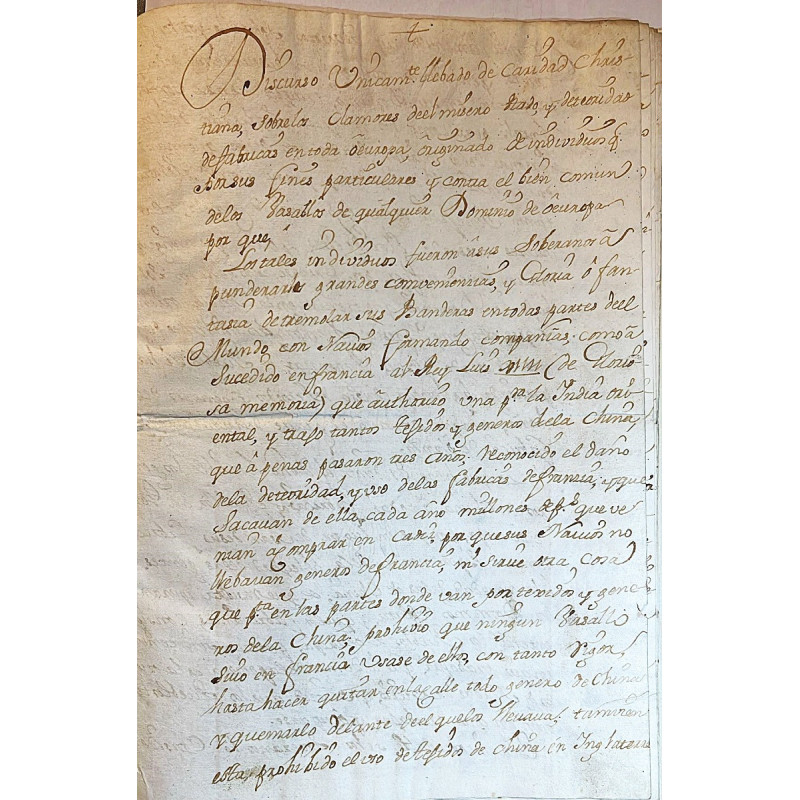 Discurso Unicam.te llebado de Caridad Chris-
tiana, sobre los Clamores deel misero stado, y deteoridad
de fabricas en toda êuropa, ôriginado de individuos q.
por sus fines particulares y contra el bien comun
de los Vasallos de qualquier Dominio de êuropa
por que,
Los tales individuos fueron â sus Soberanos â
punderarle grandes combenienttas, y Gloria ô fan-
tasia de tremolar sus Banderas en todas partes deel
Mundo con Navios formando compañias, como â
Sucedido en francia al Rey Luis XIIII (de Glorio
sa memoria) que âuthorizo una p.ra la India ori-
ental, y trajo tantos tesidos y generos de la China
que â penas pasaron tres años. reconocido el daño
de la deteoridad, y uso de las fabricas de francia, y que
Sacavan de ella cada año millones de p.s que ve
nian â Comprar en Cadiz por que sus Navios no
llebavan generos de francia, ni sirve otra cosa
que p.ta en las partes donde van por texidos y gene
ros de la China, prohivio que ningun Vasallo
suio en francia usase de ellos, con tanto Rigor
hasta hacer quitar en la Calle todo genero de China
y quemarlo delante deel que los llevava. tamvien
esta prohibido el uso de tesidos de China en Inglaterra